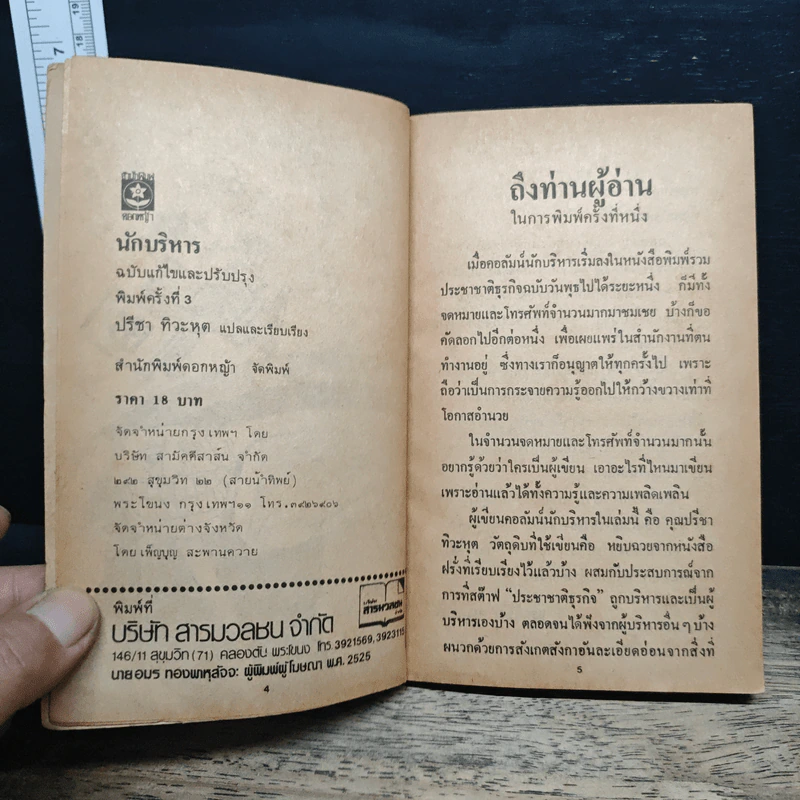 7
สำนักพิมพ์
ดอกหญ้า
นักบริหาร
ฉบับแก้ไขและปรับปรุง
พิมพ์ครั้งที่ 3
ปรีชา ทิวะหุต แปลและเรียบเรียง
สำนักพิมพ์ดอกหญ้า จัดพิมพ์
ราคา 18 บาท
จัดจำหน่ายกรุงเทพฯ โดย
บริษัท สามัคคีสาส์น จำกัด
๒๙๒ สุขุมวิท ๒๒ (สายน้ำทิพย์)
พระโขนง กรุงเทพฯ๑๑ โทร.๓๙๒๖๙๐๖
จัดจำหน่ายต่างจังหวัด
โดย เพ็ญบุญ สะพานควาย
พิมพ์ที่
บริษัท สารมวลชน จำกัด
สารมวลชน
146/11 สุขุมวิท (71) คลองตัน พระโขนง โทร. 3921569, 3923115
นายอมร ทองพาหุสัจจะ ผู้พิมพ์ผู้โฆษณา พ.ศ. 2525
4
ถึงท่านผู้อ่าน
ในการพิมพ์ครั้งที่หนึ่ง
เมื่อคอลัมน์นักบริหารเริ่มลงในหนังสือพิมพ์รวม
ประชาชาติธุรกิจฉบับวันพุธไปได้ระยะหนึ่ง ก็มีทั้ง
จดหมายและโทรศัพท์จำนวนมากมาชมเชย บ้างก็ขอ
คัดลอกไปอีกต่อหนึ่ง เพื่อเผยแพร่ในสำนักงานที่ตน
ทำงานอยู่ ซึ่งทางเราก็อนุญาตให้ทุกครั้งไป เพราะ
ถือว่าเป็นการกระจายความรู้ออกไปให้กว้างขวางเท่าที่
โอกาสอำนวย
ในจำนวนจดหมายและโทรศัพท์จำนวนมากนั้น
อยากรู้ด้วยว่าใครเป็นผู้เขียน เอาอะไรที่ไหนมาเขียน
เพราะอ่านแล้วได้ทั้งความรู้และความเพลิดเพลิน
ผู้เขียนคอลัมน์นักบริหารในเล่มนี้ คือ คุณปรีชา
ทิวะหุต วัตถุดิบที่ใช้เขียนคือ หยิบฉวยจากหนังสือ
ฝรั่งที่เรียบเรียงไว้แล้วบ้าง ผสมกับประสบการณ์จาก
การที่สต๊าฟ “ประชาชาติธุรกิจ” ถูกบริหารและเป็นผู้
บริหารเองบ้าง ตลอดจนได้ฟังจากผู้บริหารอื่น ๆ บ้าง
ผนวกด้วยการสังเกตสังกาอันละเอียดอ่อนจากสิ่งที่
5